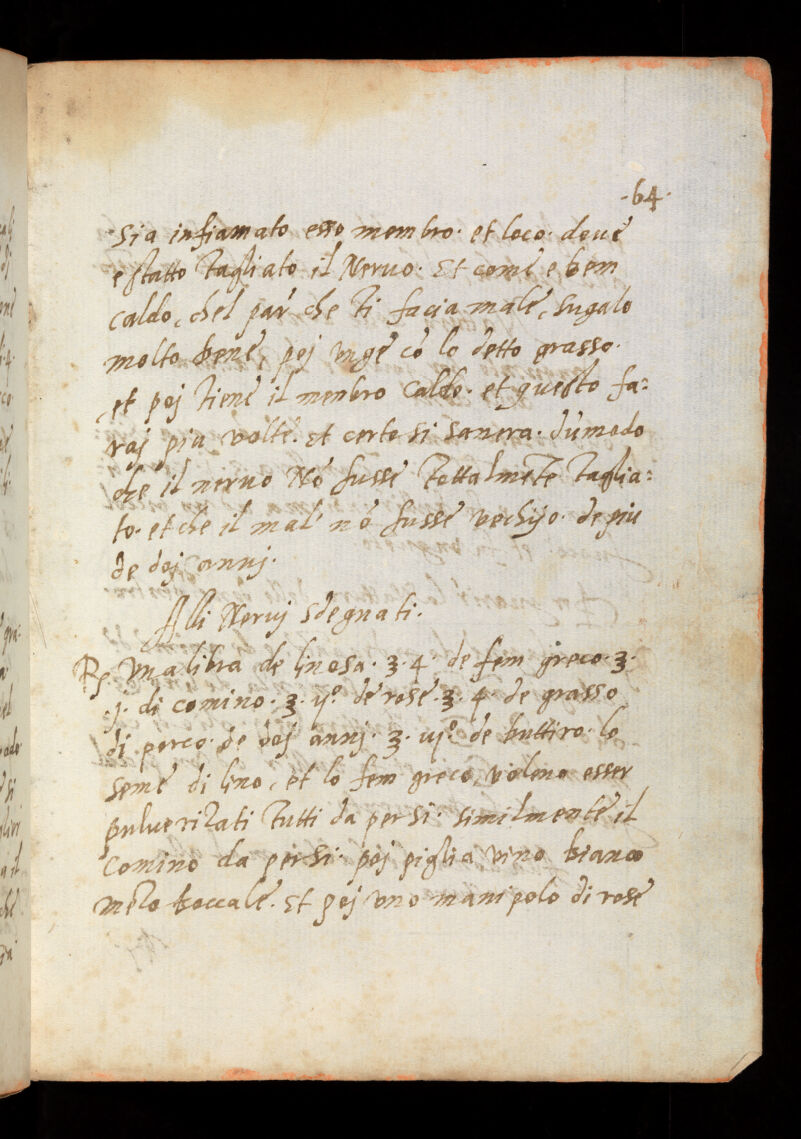 ·64·
Sia infiamato esso membro· et loco· dove
e statto Tagliato il Nervo· Et come e bem
caldo, chel par che Ti facia male, sugalo
molto bene poj unge cō lo detto grasso·
et poj Tiene il menbro Caldo· et questo fa:
raj piu volte· Et certo si sanera· dumodo
che il nervo Nō fusse Tottalmēte Taglia:
to· et che il mal nō fusse vechijo· de piu
de doj annj·
Alli Nervj sdegnati·
Rp. Una libra de linosa· ʒ· 4· de fem greco· ʒ·
·j· di comino· ʒ· ijº· de rose· ʒ· 4· de grasso
di porco· de doj annj· ʒ· iijº· de buttiro· lo
seme di lino, et lo fem greco, voleno esser
pulverizati Tutti da per si· similmente il
Comino da per si· poj piglia vino bianco
mezo boccale· Et poj uno manipolo di rose